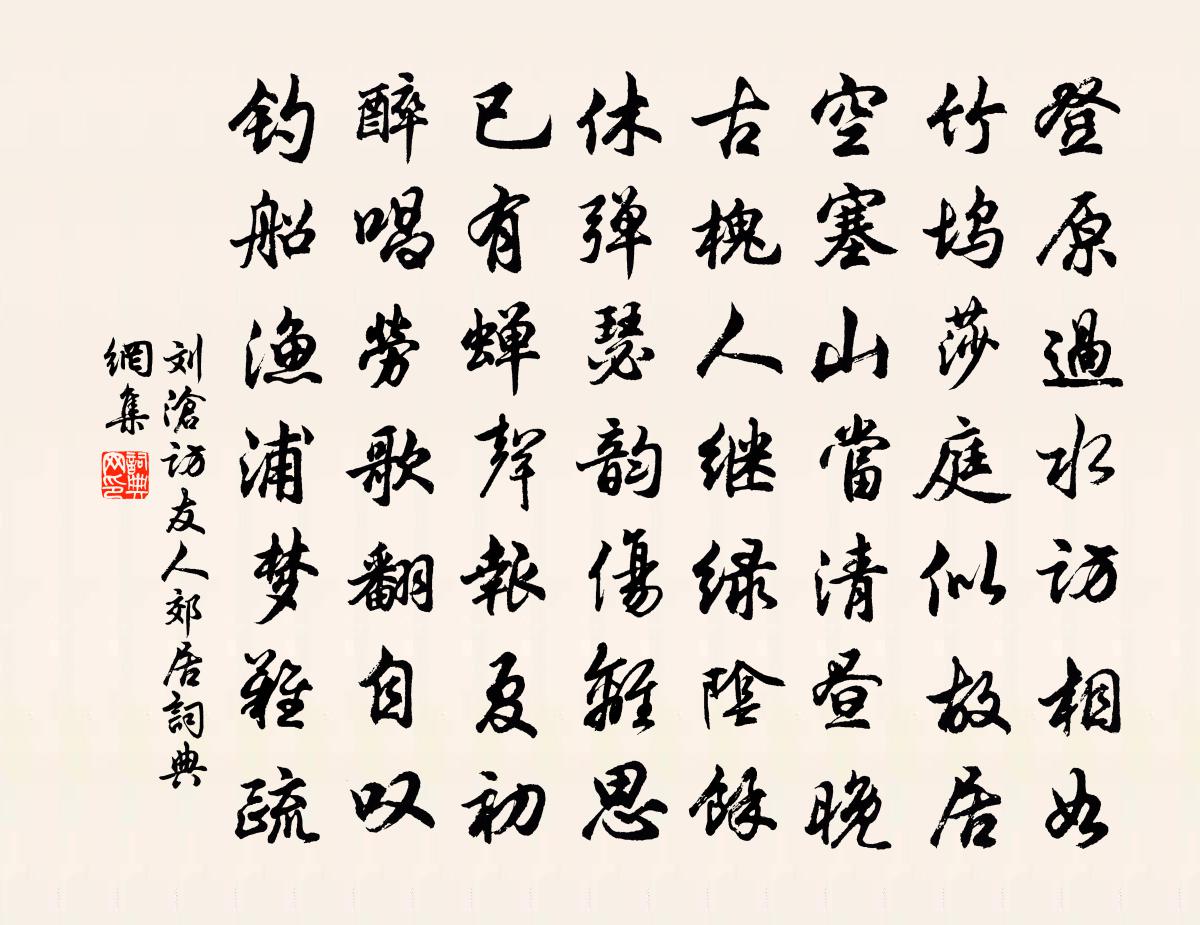 登原過水訪相如
竹坞莎庭似故居
空塞山當清昼晚
古槐人继绿陰餘
休弹瑟韵傷離思
已有蝉聲報夏初
醉唱勞歌翻自叹
钓船漁浦梦難疏
刘滄訪友人郊居詞典
網集
詞典网印